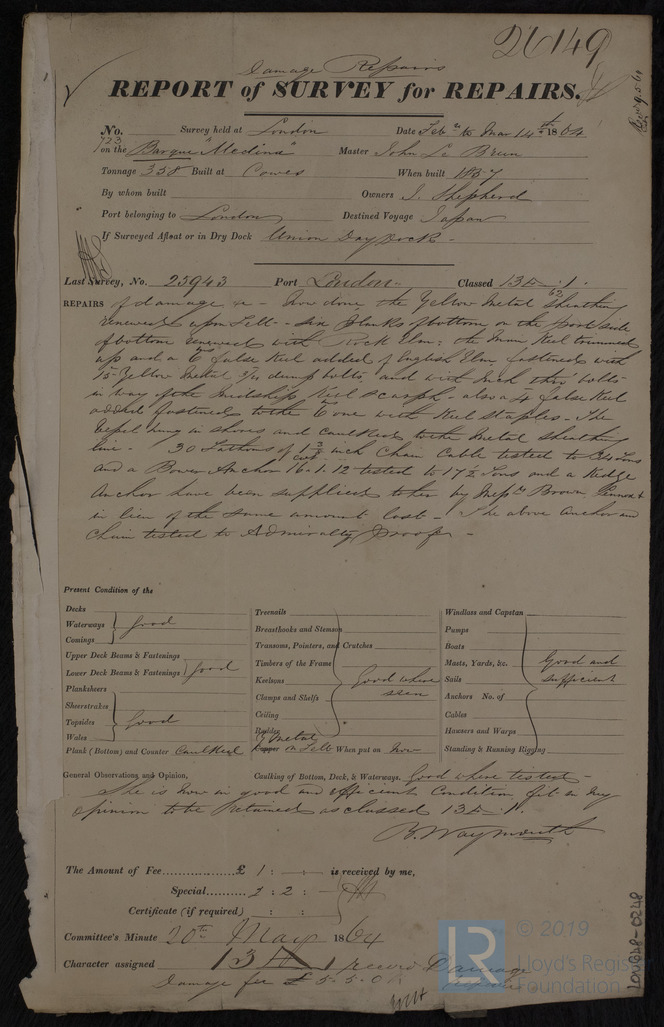 26149
Damage Repairs
REPORT of SURVEY for REPAIRS.
No. 723 Survey held at London Date Feb to Mar 14th 1864
on the Barque "Medina" Master John Le Brun
Tonnage 358 Built at Cowes When built
By whom built Owners J. Shepherd
Port belonging to London Destined Voyage Japan
If Surveyed Afloat or in Dry Dock Union Dry Dock
Last Survey, No. 25943 Port London Classed 13 1
REPAIRS of damage &c - Now done, the Yellow Metal Sheathing
renewed upon Felt - six planks of bottom on the port side
of bottom renewed with Rock Elm: the Main Keel trimmed
up and a 6 false Keel added of English Elm fastened with
Yellow Metal dump bolts and with inch thro' bolts
in way of the midship Keel scarph - also a 4 false Keel
added fastened to the 6 one with Keel staples - The
Vessel hung in shores and caulked to the Metal sheathing
line. 30 Fathoms of 1 3/8 inch Chain Cable tested to 34 Tons
and a Bower Anchor 16.1.12 tested to 17 1/2 Tons and a Kedge
Anchor have been supplied to her by Messrs Brown Lennox &
in lieu of the same amount lost - The above Anchor and
Chain tested to Admiralty proof -
Present Condition of the
Decks
Waterways good
Comings
Upper Deck Beams & Fastenings
Lower Deck Beams & Fastenings good
Planksheers
Sheerstrakes
Topsides good
Wales
Plank (Bottom) and Counter Caulked
Treenails
Breasthooks and Stemson
Transoms, Pointers, and Crutches
Timbers of the Frame
Keelsons good where
Clamps and Shelfs seen
Ceiling
Rudder
Y Metal
Copper on Felt When put on Now
Windlass and Capstan
Pumps
Boats
Masts, Yards, &c. Good and
Sails sufficient
Anchors No. of
Cables
Hawsers and Warps
Standing & Running Rigging
General Observations and Opinion, Caulking of Bottom, Deck, & Waterways. Good where tested -
She is now in good and efficient Condition fit in my
opinion to be Retained as classed 13 1.
B. Waymouth
The Amount of Fee £ 1 : : is received by me,
Special 2 : 2 :
Certificate (if required) : :
Committee's Minute 20th May 1864
Character assigned 13 A 1 record Damage
repairs
Damage fee £5.5.0
LR
© 2019
Lloyd's Register
Foundation
LON628-0248